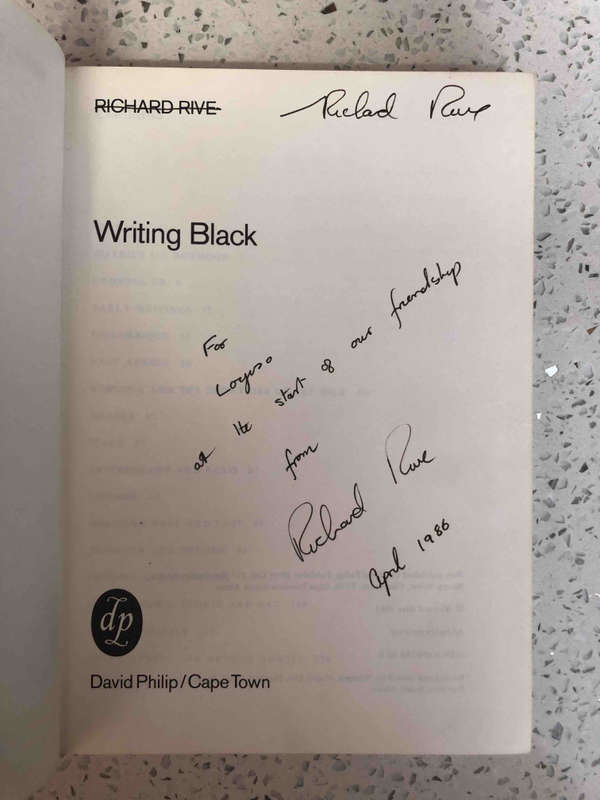 RICHARD RIVE Richard Rive
Writing Black
For
Logoso
at the start of our friendship
from
Richard Rive
April 1986
dp
David Philip/Cape Town